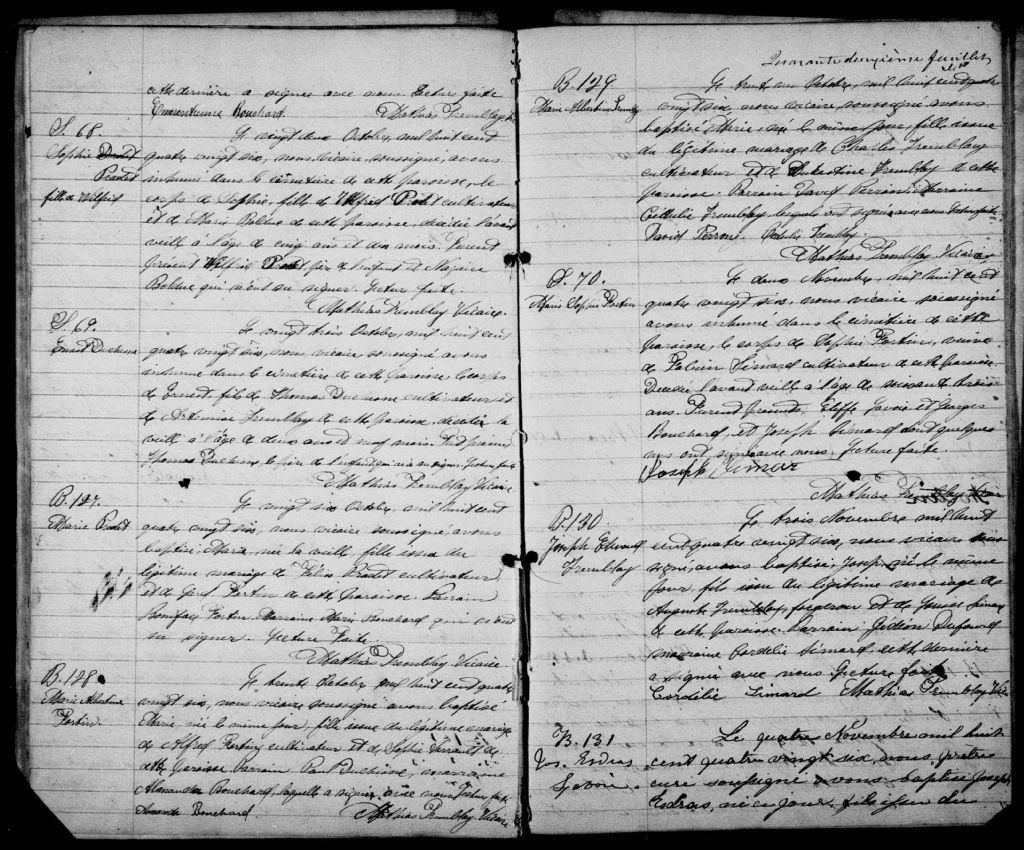 cette dernière a signée avec nous. Lecture faite
Emérentienne Bouchard. Mathias Tremblay
S. 68.
Sophie
Pradet
fille de Wilfrid
Le vingt deux Octobre, mil huit cent
quatre vingt six, nous, vicaire, soussigné, avons
inhumé dans le cimetière de cette paroisse, le
corps de Sophie, fille de Wilfrid Pradet cultivateur
et de Marie Bolduc de cette paroisse, décédée l'avant
veille à l'age de cinq ans et dix mois. Furent
présent Wilfrid Pradet père de l'enfant et Nazaire
Bolduc qui n'ont su signer. Lecture faite.
Mathias Tremblay Vicaire.
S. 69.
Ernest Duchesne
Le vingt trois Octobre, mil huit cent
quatre vingt six, nous vicaire soussigné avons
inhumé dans le cimetière de cette paroisse, le corps
de Ernest, fils de Thomas Duchesne cultivateur et
de Tremblay de cette paroisse, décédé la
veille à l'age de deux ans et neuf mois.
Thomas Duchesne, le père de l'enfant qui n'a su signer. Lecture faite
Mathias Tremblay Vicaire
B. 127.
Marie Pradet
Le vingt six Octobre, mil huit cent
quatre vingt six, nous vicaire soussigné avons
baptisé Marie, née la veille fille issue du
légitime mariage de Félix Pradet cultivateur
et de Fortin de cette paroisse Parrain
Boniface Fortin Marraine Marie Bouchard qui n'ont
su signer. Lecture Faite.
Mathias Tremblay Vicaire.
B. 128.
Marie Albertine
Fortin.
Le trente Octobre mil huit cent quatre
vingt six, nous vicaire soussigné avons baptisé
Marie née le même jour, fille issue du légitime mariage
de Alfred Fortin cultivateur et de Sophie de
cette paroisse Parrain Paul Duchesne, marraine
Amanda Bouchard, laquelle a signée avec nous. Lecture faite
Amanda Bouchard. Mathias Tremblay. Vicaire
Quarante deuxième feuillet
B. 129.
Marie Albertine Tremblay
Le trente un Octobre, mil huit cent quatre
vingt six, nous vicaire soussigné avons
baptisé Marie, née le même jour, fille issue
du légitime mariage de Charles Tremblay
cultivateur et de Tremblay de cette
paroisse. Parrain David Perron, Marraine
Tremblay lesquels ont signé avec nous. Lecture faite.
David Perron. Tremblay.
Mathias Tremblay Vicaire
S. 70.
Marie Sophie Fortin
Le deux Novembre, mil huit cent
quatre vingt six, nous vicaire soussigné
avons inhumé dans le cimetière de cette
paroisse, le corps de Sophie Fortin, veuve
de Simard cultivateur de cette paroisse.
Décédée l'avant veille à l'age de soixante trois
ans. Furent présents, Savoie et Georges
Bouchard, et Joseph Simard dont quelques
uns ont signé avec nous. Lecture faite.
Joseph Simard
Mathias Tremblay Vicaire
B. 130
Joseph Edward
Tremblay
Le trois Novembre mil huit
cent quatre vingt six, nous vicaire sous
signé, avons baptisé, Joseph né le même
jour, fils issu du légitime mariage de
Auguste Tremblay, forgeron et de Simard
de cette paroisse. Parrain Gédéon Dufour
marraine Cordélie Simard, cette dernière
a signée avec nous. Lecture faite
Cordélie Simard Mathias Tremblay Vicaire
B. 131
Jos.
Savoie.
Le quatre Novembre mil huit
cent quatre vingt six, nous, prêtre
curé soussigné avons baptisé Joseph
né ce jour, fils issu du